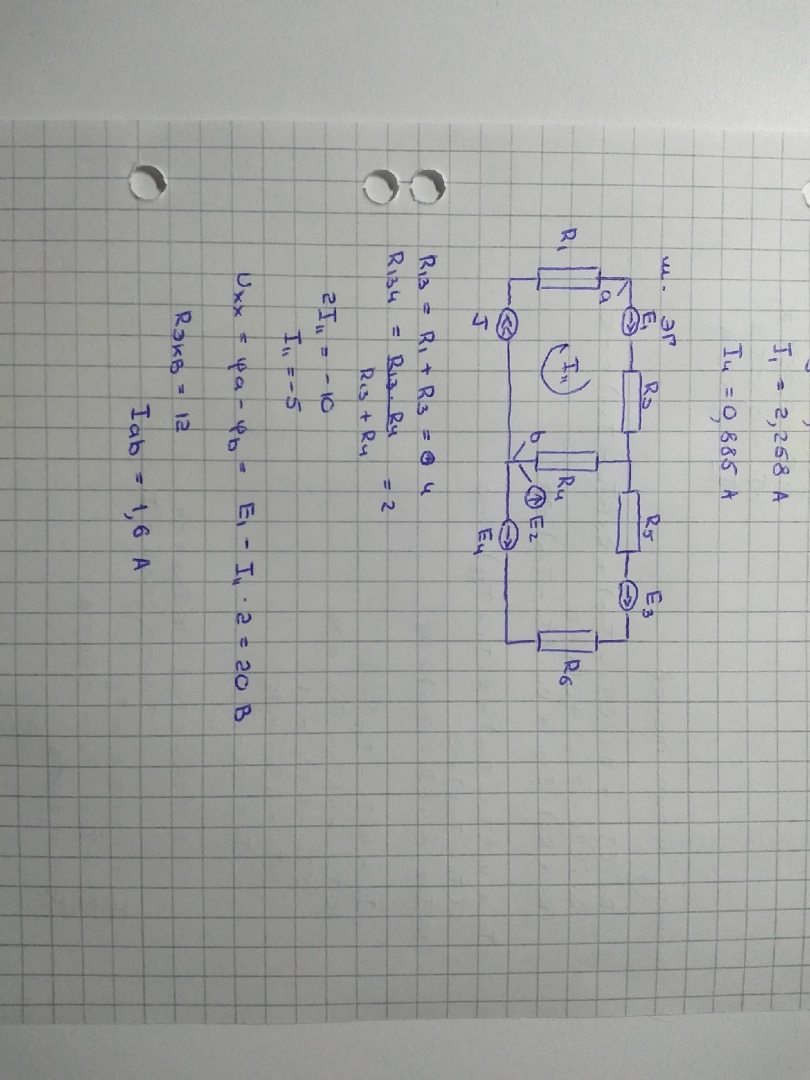 I₁ = 2,258 A
I₄ = 0,885 A
ш. ЭГ
E₁ R₃ R₅ E₃
a
R₁ I₁₁ R₄ E₂ R₆
b
J E₄
R₁₃ = R₁ + R₃ = 4
R₁₃₄ = R₁₃ · R₄ / R₁₃ + R₄ = 2
2I₁₁ = -10
I₁₁ = -5
Uxx = φa - φb = E₁ - I₁₁ · 2 = 20 В
Rэкв = 12
Iab = 1,6 A